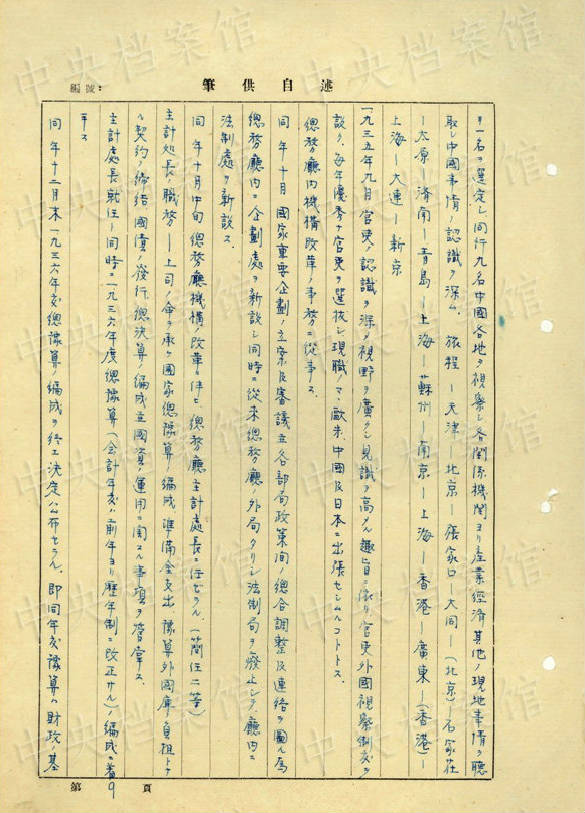 編號：
筆供自述
ヲ一名ヲ選定シ同行九名中國各地ヲ視察シ各関係機関ヨリ産業経済其他ノ現地事情ヲ聴
取シ中國事情ノ認識ヲ深ム、旅程ー天津ー北京ー張家口ー大同ー(北京)ー石家荘
ー太原ー済南ー青島ー上海ー蘇州ー南京ー上海ー香港ー廣東ー(香港)ー
上海ー大連ー新京
一九三五年九月官吏ノ認識ヲ深メ視野ヲ廣クシ見識ヲ高メル趣旨ニ依リ官吏外國視察制度ヲ
設ク、毎年優秀ナ官吏ヲ選抜シ現職ノママ歐米、中國及日本ニ出張セシムルコトトス、
總務廳内機構改革ノ事務ニ従事ス
同年十月國家重要企劃ノ立案及審議並各部局政策間ノ綜合調整及連絡ヲ圖ル為
總務廳内ニ企劃処ヲ新設シ同時ニ従来總務廳ノ外局タリシ法制局ヲ廢止シテ廳内ニ
法制處ヲ新設ス、
同年十月中旬總務廳機構ノ改革ニ伴ヒ總務廳主計處長ニ任セラル、(簡任二等)
主計処長ノ職務ー上司ノ命ヲ承ケ國家總豫算ノ編成準備金支出、豫算外國庫ノ負担トナ
ル契約ノ締結國債ノ發行、總決算ノ編成並國資ノ運用ニ関スル事項ヲ管掌ス、
主計處長就任ト同時ニ一九三六年度總豫算(会計年度ハ前年ヨリ歴年制ニ改正サル)ノ編成ニ着
手ス
同年十二月末一九三六年度總豫算ノ編成ヲ終エ決定公布セラル、即同年度豫算ハ財政ノ基
9
第　頁
中央档案馆